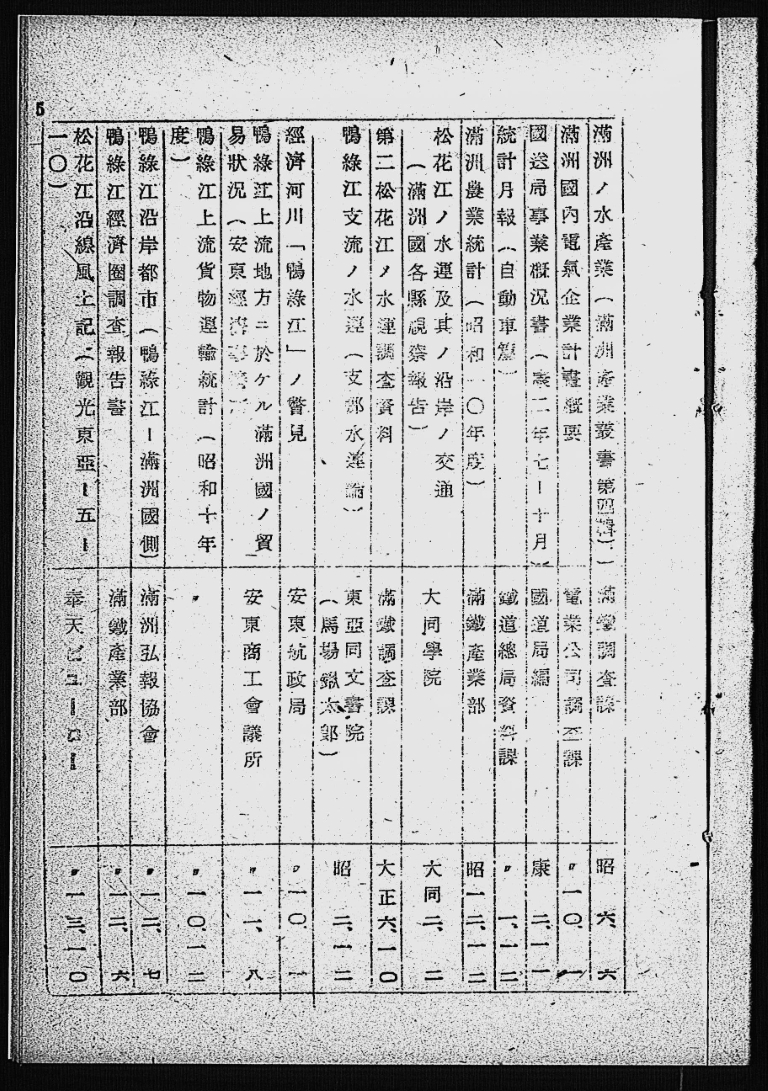 5
滿洲ノ水產業（滿洲產業叢書第四輯） 滿鐵調査課 昭 六、六
滿洲國內電氣企業計畫概要 電業公司調査課 〃一〇、一
國道局事業概況書（康二年七ー十月） 國道局編 康 二、一一
統計月報（自動車篇） 鐵道總局資料課 〃 一、一二
滿洲農業統計（昭和一〇年度） 滿鐵產業部 昭一二、一二
松花江ノ水運及其ノ沿岸ノ交通
（滿洲國各縣視察報告） 大同學院 大同二、二
第二松花江ノ水運調査資料 滿鐵調査課 大正六、一〇
鴨綠江支流ノ水運（支那水運論） 東亞同文書院
（馬場鍬太郎） 昭 二、一二
經濟河川「鴨綠江」ノ瞥見 安東航政局 〃一〇、一
鴨綠江上流地方ニ於ケル滿洲國ノ貿
易狀況（安東經濟 安東商工會議所 〃一一、八
鴨綠江上流貨物運輸統計（昭和十年
度） 〃 〃一〇、一二
鴨綠江沿岸都市（鴨綠江ー滿洲國側） 滿洲弘報協會 〃一二、七
鴨綠江經濟圈調査報告書 滿鐵產業部 〃一二、六
松花江沿線風土記（觀光東亞ー五ー
一〇） 奉天ビューロー 〃一三、一〇